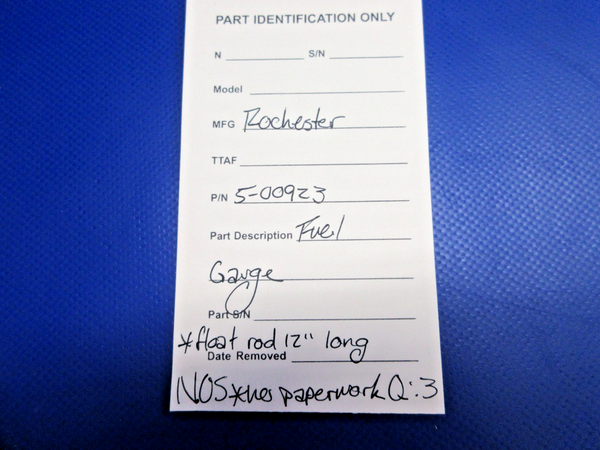 PART IDENTIFICATION ONLY
N S/N
Model
MFG Rochester
TTAF
P/N 5-00923
Part Description Fuel
Gauge
Part S/N
*float rod 12" long
Date Removed
NOS *has paperwork Q:3